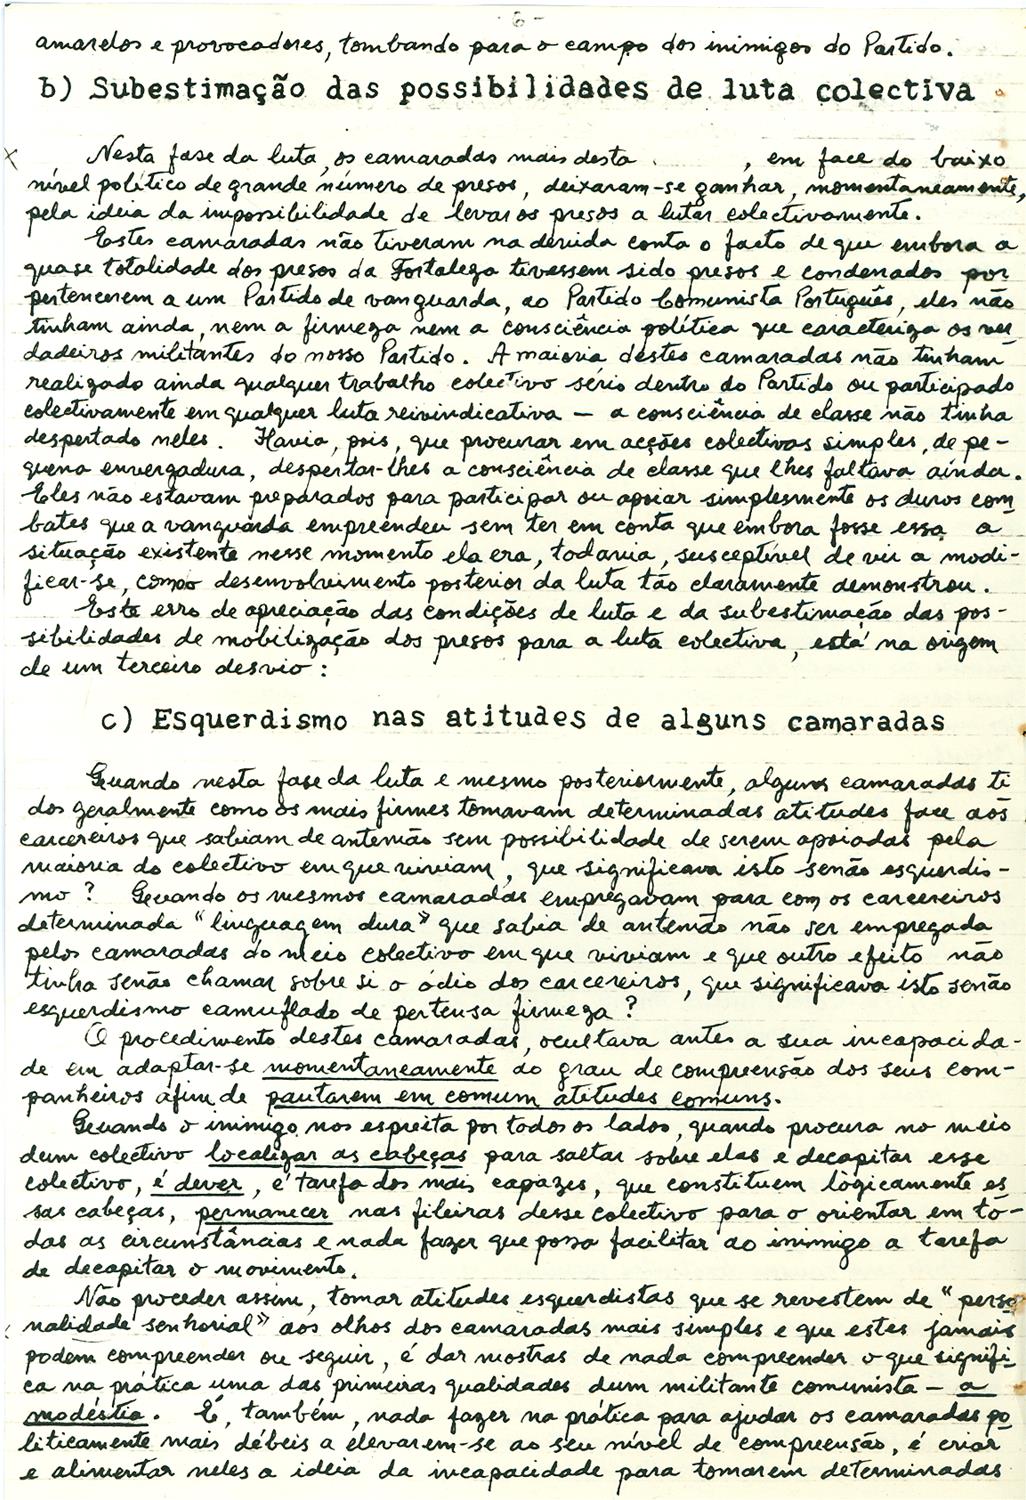 - 6 -
amarelos e provocadores, tombando para o campo dos inimigos do Partido.
b) Subestimação das possibilidades de luta colectiva
Nesta fase da luta, os camaradas mais desta , em face do baixo
nível político de grande número de presos, deixaram-se ganhar, momentaneamente,
pela ideia da impossibilidade de levar os presos a lutar colectivamente.
Estes camaradas não tiveram na devida conta o facto de que embora a
quase totalidade dos presos da Fortaleza tivessem sido presos e condenados por
pertencerem a um Partido de vanguarda, ao Partido Comunista Português, eles não
tinham ainda, nem a firmeza nem a consciência política que caracteriza os ver
dadeiros militantes do nosso Partido. A maioria destes camaradas não tinham
realizado ainda qualquer trabalho colectivo sério dentro do Partido ou participado
colectivamente em qualquer luta reivindicativa — a consciência de classe não tinha
despertado neles. Havia, pois, que procurar em acções colectivas simples, de pe-
quena envergadura, despertar-lhes a consciência de classe que lhes faltava ainda.
Eles não estavam preparados para participar ou apoiar simplesmente os duros com
bates que a vanguarda empreendeu sem ter em conta que embora fosse essa a
situação existente nesse momento ela era, todavia, susceptível de vir a modi-
ficar-se, como o desenvolvimento posterior da luta tão claramente demonstrou.
Este erro de apreciação das condições de luta e da subestimação das pos-
sibilidades de mobilização dos presos para a luta colectiva, está na origem
de um terceiro desvio :
c) Esquerdismo nas atitudes de alguns camaradas
Quando nesta fase da luta e mesmo posteriormente, alguns camaradas ti
dos geralmente como os mais firmes tomavam determinadas atitudes face aos
carcereiros que sabiam de antemão sem possibilidade de serem apoiadas pela
maioria do colectivo em que viviam, que significava isto senão esquerdis-
mo ? Quando os mesmos camaradas empregavam para com os carcereiros
determinada "linguagem dura" que sabia de antemão não ser empregada
pelos camaradas do meio colectivo em que viviam e que outro efeito não
tinha senão chamar sobre si o ódio dos carcereiros, que significava isto senão
esquerdismo camuflado de pertensa firmeza ?
O procedimento destes camaradas, ocultava antes a sua incapacida-
de em adaptar-se momentaneamente ao grau de compreensão dos seus com-
panheiros afim de pautarem em comum atitudes comuns.
Quando o inimigo nos espreita por todos os lados, quando procura no meio
dum colectivo localizar as cabeças para saltar sobre elas e decapitar esse
colectivo, é dever, é tarefa dos mais capazes, que constituem lògicamente es
sas cabeças, permanecer nas fileiras desse colectivo para o orientar em to-
das as circunstâncias e nada fazer que possa facilitar ao inimigo a tarefa
de decapitar o movimento.
Não proceder assim, tomar atitudes esquerdistas que se revestem de "perso
nalidade senhorial" aos olhos dos camaradas mais simples e que estes jamais
podem compreender ou seguir, é dar mostras de nada compreender o que signifi
ca na prática uma das primeiras qualidades dum militante comunista — a
modéstia. É, também, nada fazer na prática para ajudar os camaradas po
liticamente mais débeis a elevarem-se ao seu nível de compreensão, é criar
e alimentar neles a ideia da incapacidade para tomarem determinadas